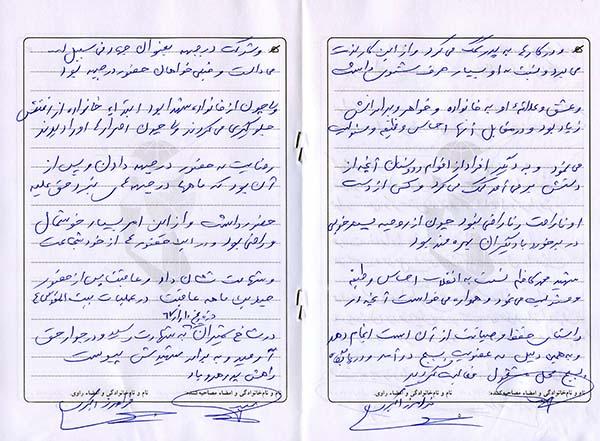 و در کارها به پدر کمک می کرد و از این کار لذت
می برد و نسبت به او بسیار حرف شنوی داشت
و عشق و علاقه او به خانواده و خواهر و برادرانش
زیاد بود و در مقابل آنها احساس وظیفه و مسئولیت
می نمود و به دیگر افراد از اقوام و دوستان آنچه از
دستش بر می آمد کمک می کرد و کسی از دست
او ناراحت و ناراضی نبود چون از روحیه بسیار خوبی
در برخورد با دیگران بهره مند بود
شهید محمد کاظم نسبت به انقلاب احساس وظیفه
و مسئولیت می نمود و همواره می خواست آنچه در
راستای حفظ و صیانت از آن است انجام دهد
و به همین دلیل به عضویت بسیج در آمد و در پایگاه
بسیج محل مشغول فعالیت گردید
نام و نام خانوادگی و امضاء مصاحبه کننده:
نام و نام خانوادگی و امضاء راوی
و شرکت در جبهه بعنوان جهاد فی سبیل الله
می دانست و خواهان حضور در جبهه بود
ولی چون از خانواده شهدا بود ابتدا خانواده از رفتنش
جلوگیری می کردند ولی چون اصرار او را دیدند
رضایت به حضور در جبهه دادن و پس از
آن بود که ماهها در جبهه های نبرد حق علیه
حضور داشت و از این امر بسیار خوشحال
و راضی بود و در این حضور از خود شجاعت
و شهامت نشان داد و عاقبت پس از حضور
چندین ماهه عاقبت در عملیات بیت المقدس ۴
در تاریخ
در شاخ شمیران به شهادت رسید و در جوار حق
آرمید و به برادر شهیدش پیوست
راهش پر رهرو باد
نام و نام خانوادگی و امضاء مصاحبه کننده:
نام و نام خانوادگی و امضاء راوی